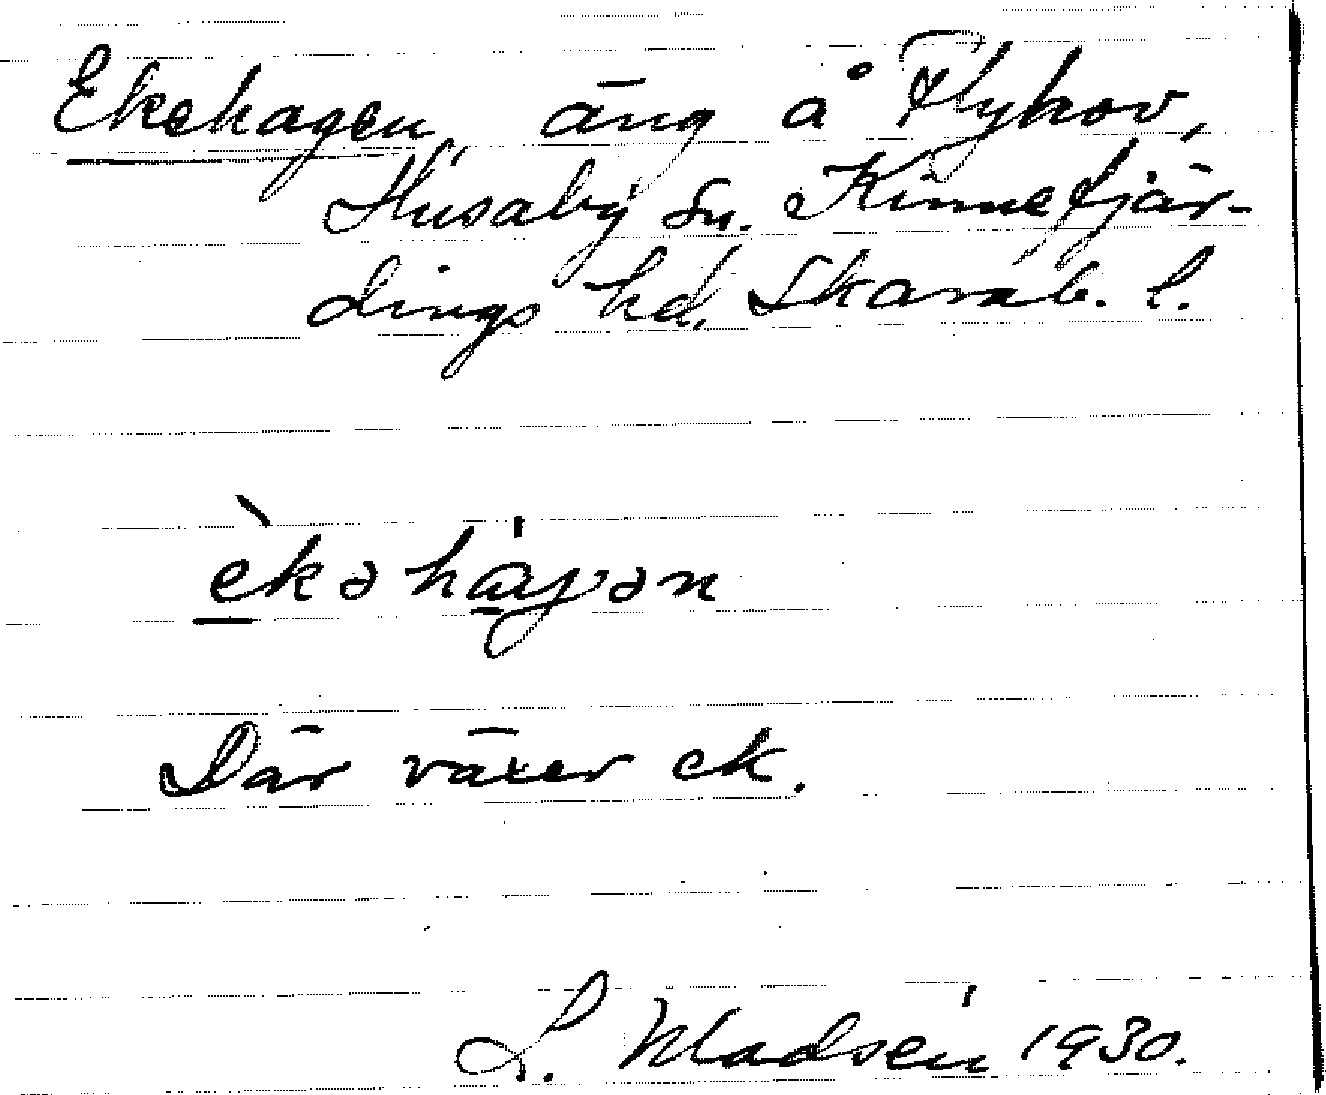 Ekehagen, äng å Flyhov,
Husaby sn. Kinnefjär-
dings hd, Skarab. l.
èkəhàgən
Där växer ek.
L. Madsén 1930.